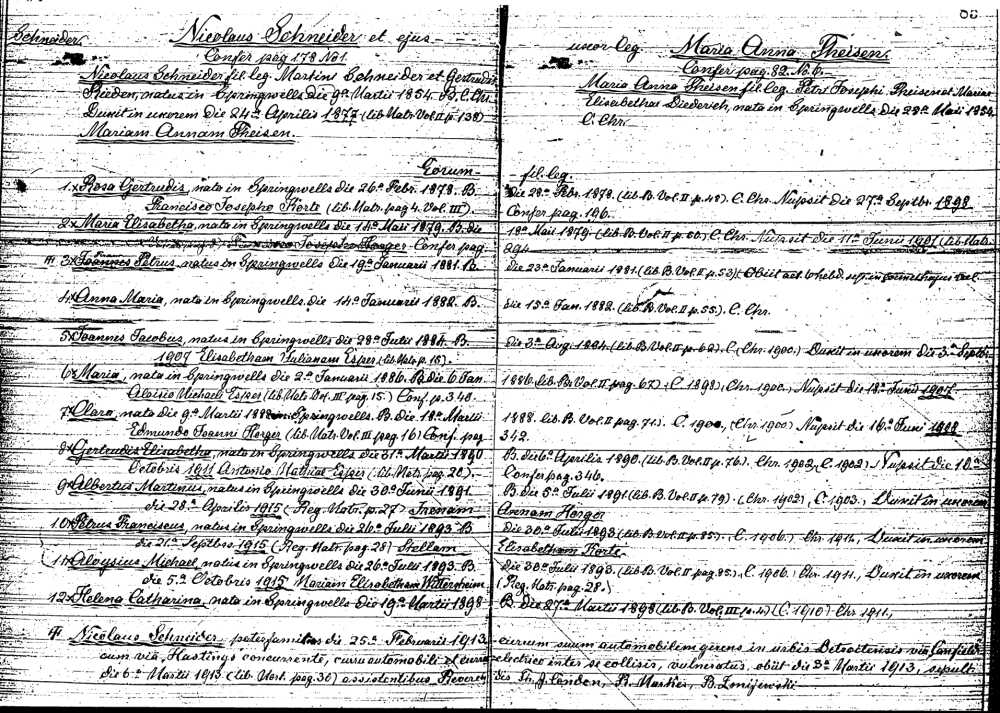 Schneider.
Nicolaus Schneider et ejus
Confer pag 178 No 1.
Nicolaus Schneider fil. leg. Martini Schneider et Gertrudis
Rieden, natus in Springwells die 9a Martii 1854. B. C. Chr.
Duxit in uxorem die 24a Aprilis 1877 (lib. Matr. Vol. II p. 138)
Mariam Annam Theisen.
uxor leg. Maria Anna Theisen.
Confer pag. 82. No. 6.
Maria Anna Theisen fil. leg. Petri Josephi Theisen et Mariae
Elisabethae Diederich, nata in Springwells die 29a Maii 1854.
C. Chr.
Eorum fil. leg.
1. x Rosa Gertrudis, nata in Springwells die 26a Febr. 1878. B. die 28a Febr. 1878. (lib. B. Vol. II p. 48). C. Chr. Nupsit die 27a Septbr. 1898
Francisco Josepho Korte (lib. Matr. pag 4. Vol. III). Confer pag. 196.
2. x Maria Elisabetha, nata in Springwells die 14a Maii 1879. B. die 19a Maii 1879. (lib. B. Vol. II p. 50). C. Chr. Nupsit die 11a Junii 1901 (lib. Matr.
Francisco Josepho Horger. Confer pag. 294
3. x Joannes Petrus, natus in Springwells die 19a Januarii 1881. B. die 23a Januarii 1881. (lib. B. Vol. II p. 53). Obiit aet. 6 hebd.
4. x Anna Maria, nata in Springwells die 14a Januarii 1882. B. die 15a Jan. 1882. (lib. B. Vol. II p. 55). C. Chr.
5. x Joannes Jacobus, natus in Springwells die 29a Julii 1884. B. die 3a Aug. 1884. (lib. B. Vol. II p. 62). C. (Chr. 1900.) Duxit in uxorem die 3a Septb.
1907 Elisabetham Julianam Esper. (lib. Matr. p. 15.)
6. x Maria, nata in Springwells die 2a Januarii 1886. B. die 6 Jan. 1886. (lib. B. Vol. II pag. 67). C. 1898, Chr. 1900. Nupsit die 18a Junii 1907
Aloisio Michaeli Esper (lib. Matr. Vol. III pag. 15.) Conf. p. 340.
7. x Clara, nata die 9a Martii 1888 in Springwells. B. die 18a Martii 1888. lib. B. Vol. II pag. 71. C. 1900, (Chr. 1900) Nupsit die 16a Juni 1908
Edmundo Joanni Horger (lib. Matr. Vol. III pag. 16) Conf. pag. 342.
8. x Gertrudis Elisabetha, nata in Springwells die 31a Martii 1890 B. die 6a Aprilis 1890. (lib. B. Vol. II p. 76). Chr. 1903, C. 1902) Nupsit die 10a
Octobris 1911 Antonio Mathiae Esper (lib. Matr. pag. 20). Confer pag. 346.
9. x Albertus Martinus, natus in Springwells die 30a Junii 1891. B. die 5a Julii 1891 (lib. B. Vol. II p. 79). (Chr. 1902, C. 1903. Duxit in uxorem
die 28a Aprilis 1915 (Reg. Matr. p. 27) Irenam Horger
10. x Petrus Franciscus, natus in Springwells die 26a Julii 1893. B. die 30a Julii 1893 (lib. B. Vol. II p. 85). C. 1906. Chr. 1911, Duxit in uxorem
die 21a Septbr. 1915 (Reg. Matr. pag. 28) Stellam Elisabetham Korte
11. x Aloysius Michael, natus in Springwells die 26a Julii 1893. B. die 30a Julii 1893. (lib. B. Vol. II pag. 85). C. 1906. Chr. 1911. Duxit in uxorem
die 5a Octobris 1915 Mariam Elisabetham Wittersheim (Reg. Matr. pag. 28.)
12. x Helena Catharina, nata in Springwells die 19a Martii 1898 B. die 27a Martii 1898 (lib. B. Vol. III p. 4) (C. 1910) Chr 1911.
Nicolaus Schneider, paterfamilias die 25a Februarii 1913 currum suum automobilem gerens in urbis Detroitensis via Canfield
cum via Hastings concurrente, curru automobili et curru electrico inter se collisis, vulneratus, obiit die 3a Martii 1913, sepult.
die 6a Martii 1913 (lib. Mort. pag. 30) assistentibus Reveren dis Dn. J. Condon, B. Markes, B. Zmijewski